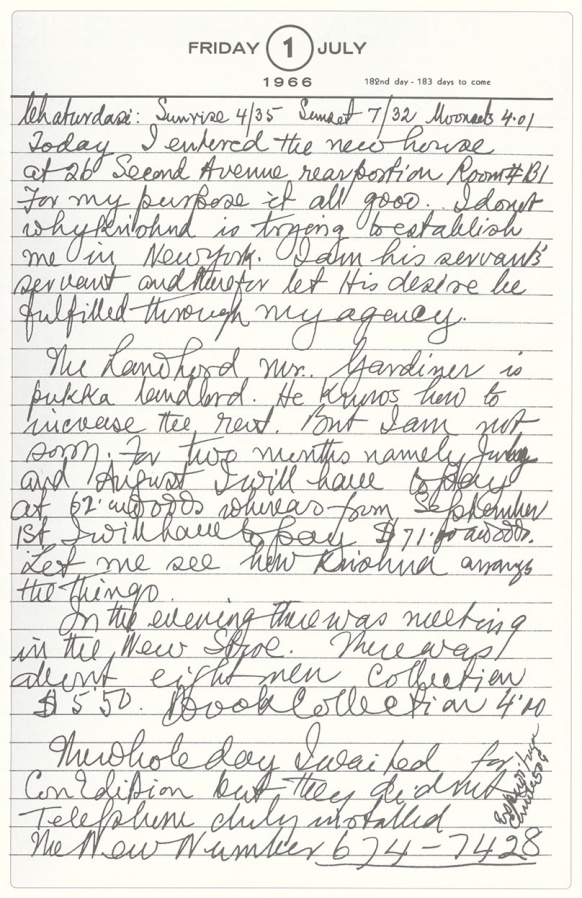 FRIDAY 1 JULY
1966
182nd day - 183 days to come
Chaturdasi: Sunrise 4/35 Sunset 7/32 Moonsets 4.01
Today I entered the new house
at 26 Second Avenue rear portion Room # B1
For my purpose it all good. I do not
why Krishna is trying to establish
me in New York. I am his servant's
servant and therefor let His desire be
fulfilled through my agency.
The Landlord Mr. Gardiner is
pukka landlord. He knows how to
increase the rent. But I am not
sorry. For two months namely July
and August I will have to pay
at 62. whereas from September
1st I will have to pay $71.
Let me see how Krishna arranges
the things.
In the evening there was meeting
in the New Store. There was
about eight men Collection
$5.50. Book Collection 4.00
The whole day I waited for
Con Edision but they did not
Telephone duly installed
The New Number 674-7428